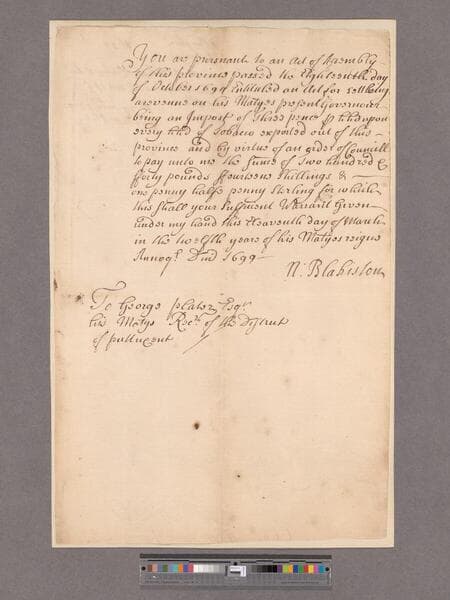 You are pursuant to an Act of Assembly
of this province passed the Eighteenth day
of October 1694 Entituled an Act for Settling
a revenue on his Matyes present Governour
being an Impost of Three pence p titd upon
every titd of Tobacco exported out of this
province and by virtue of an order of Councill
to pay unto me the Sume of Two hundred &
forty pounds fourteene shillings &
one penny halfe penny Sterling for which
this shall your Sufficient Warrant Given
under my hand this Eleaventh day of March
in the twelfth yeare of his Matyes reigne
Annoq Dni 1699
N: Blakiston
To George Plater Esqr
his Matys Recr of the District
of puttuxent